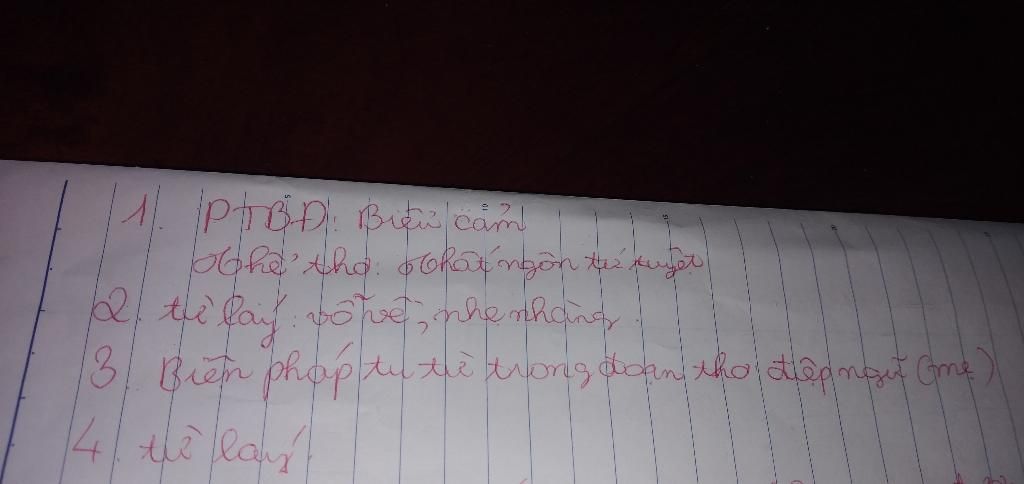 1. PTBĐ: Biểu cảm
Thể thơ: Thất ngôn tứ tuyệt
2. từ láy: vỗ về, nhẹ nhàng.
3. Biện pháp tu từ trong đoạn thơ điệp ngữ (mẹ)
4. từ láy